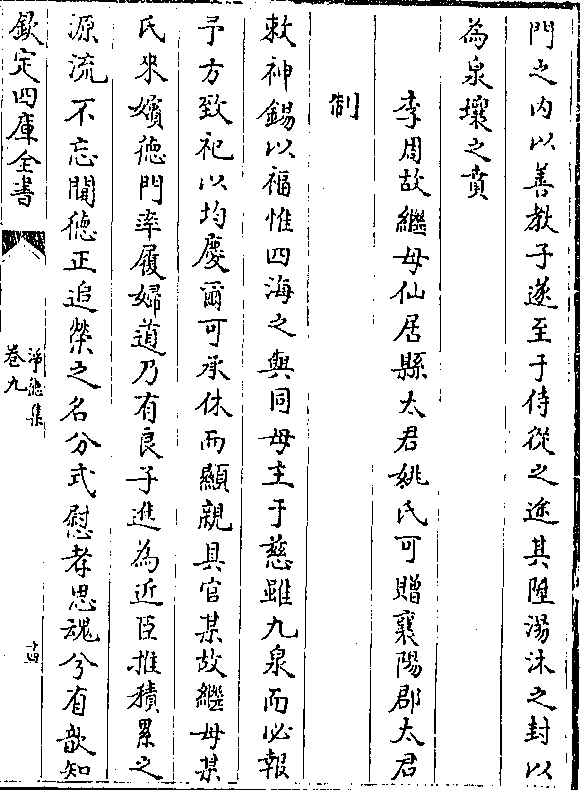 門之内以善教子遂至于侍從之途其陞湯沐之封以
為泉壤之賁
李周故繼母仙居縣太君姚氏可贈襄陽郡太君
制
敕神錫以福惟四海之與同母主于慈雖九泉而必報
予方致祀以均慶爾可承休而顯親具官某故繼母某
氏來嬪徳門率履婦道乃有良子進為近臣推積累之
源流不忘聞徳正追榮之名分式慰孝思魂兮有歆知
欽定四庫全書
淨徳集
卷九
十四